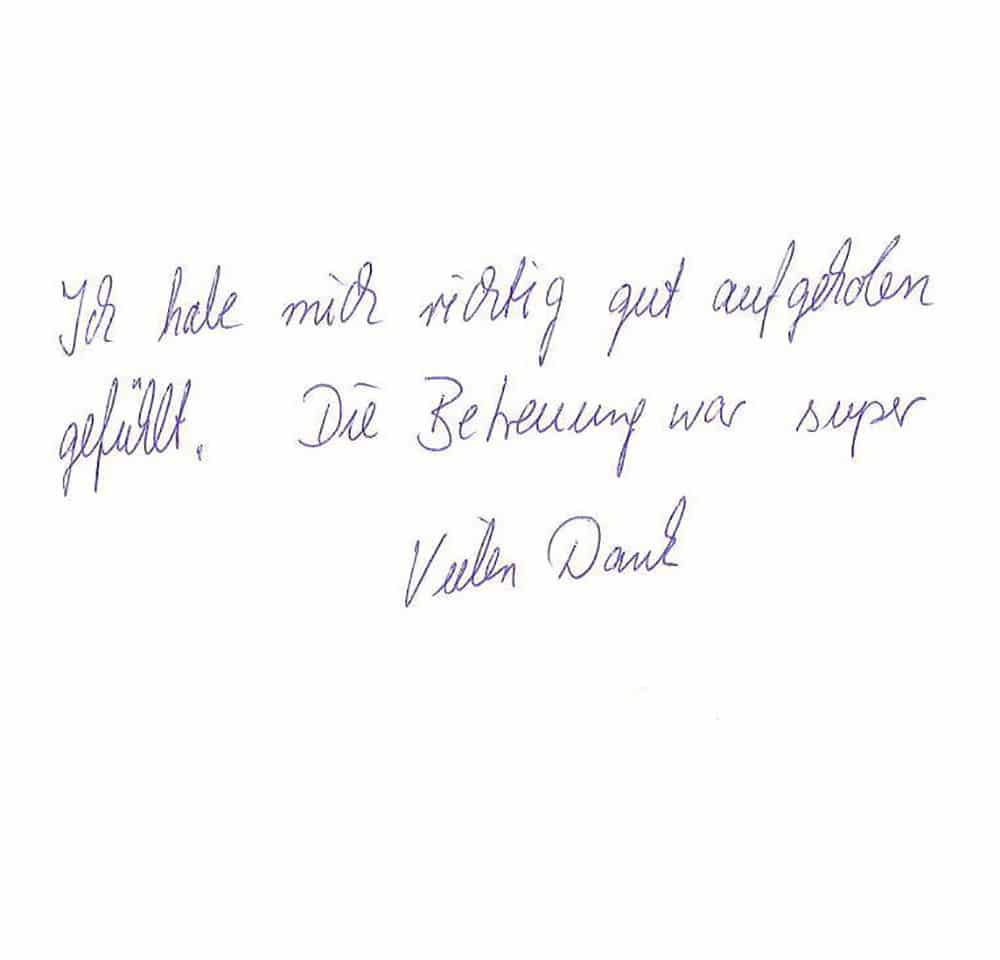 Ich habe mich richtig gut aufgehoben
gefühlt. Die Betreuung war super
Vielen Dank